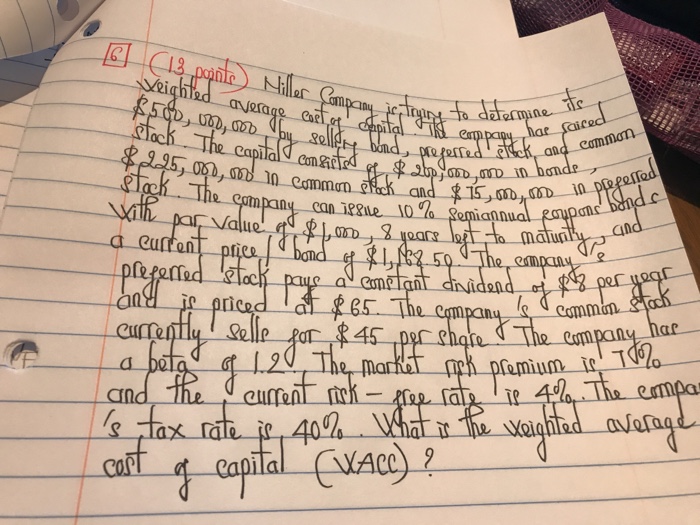 6 (13 points) Miller Company is trying to determine its
weighted average cost of capital. The company has raised
$500,000,000 by selling bond, preferred stock and common
stock. The capital consisted of $200,000,000 in bonds,
$225,000,000 in common stock and $75,000,000 in preferred
stock. The company can issue 10% semiannual coupons bonds
with par value of $1,000, 8 years left to maturity, and
a current price / bond of The company's
preferred stock pays a constant dividend of $8 per year
and is priced at $65. The company's common stock
currently sells for $45 per share. The company has
a beta of 1.2. The market risk premium is
and the current risk-free rate is 4%. The compa
's tax rate is 40%. What is the weighted average
cost of capital (WACC)?